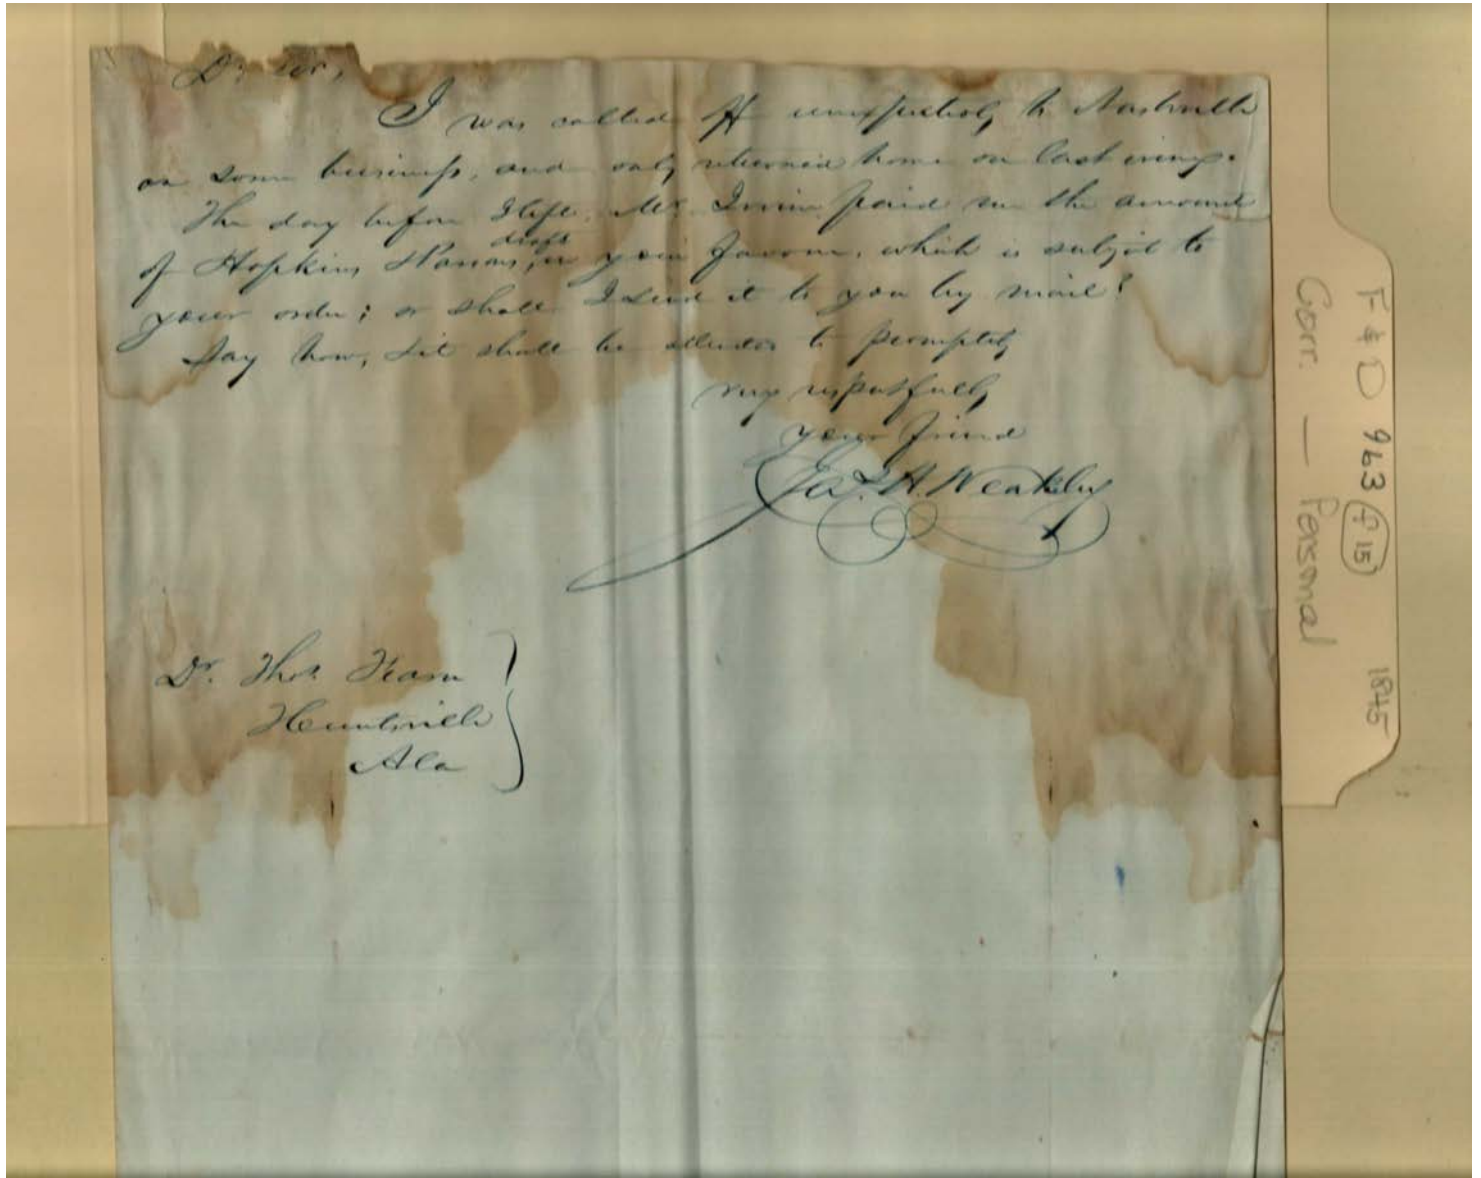 Dr Sir,
I was called off unexpectedly to Nashville
on some business, and only returned home on last eveng.
The day before I left, Mr. Irvine paid me the amount
draft
of Hopkins in your favour, which is subject to
your order; or shall I send it to you by mail?
Say how, & it shall be attended to promptly
very respectfully
your friend
Jas. H. Weakley
Dr. Thos. Fearn
Huntsville
Ala
F & D 963 F 15 1845
Corr. — Personal